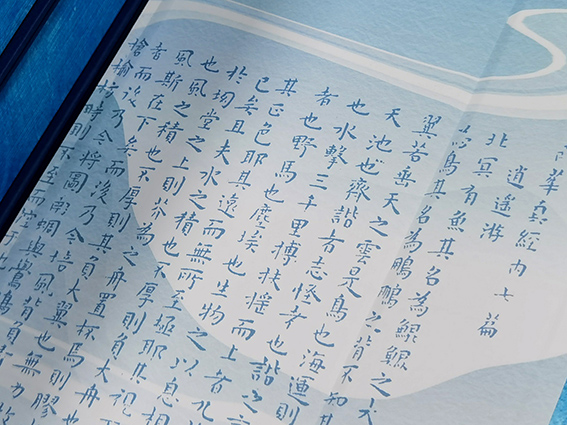 華真經內七篇
逍遙游
北冥有魚其名為鯤鯤之大
為鳥其名為鵬鵬之背不知其
翼若垂天之雲是鳥也海運則
天池也齊諧者志怪者也諧之
也水擊三千里摶扶搖而上者九
者也野馬也塵埃也生物之以息相
其正色耶其遠而無所至極耶其視下
已矣且夫水之積也不厚則負大舟也
於坳堂之上則芥為之舟置杯焉則膠
也風之積也不厚則其負大翼也無力故
風斯在下矣而後乃今培風背負
者而後乃今將圖南蜩與鷽鳩
搶榆枋時則不至而控